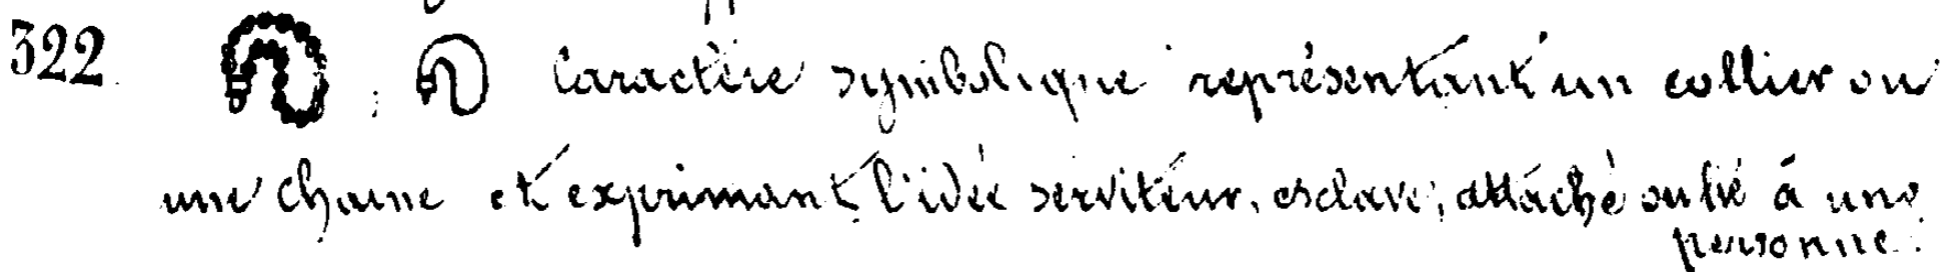 322. ; Caractère symbolique représentant un collier ou
une chaine et exprimant l'idée serviteur, esclave, attaché ou lié à une
personne.